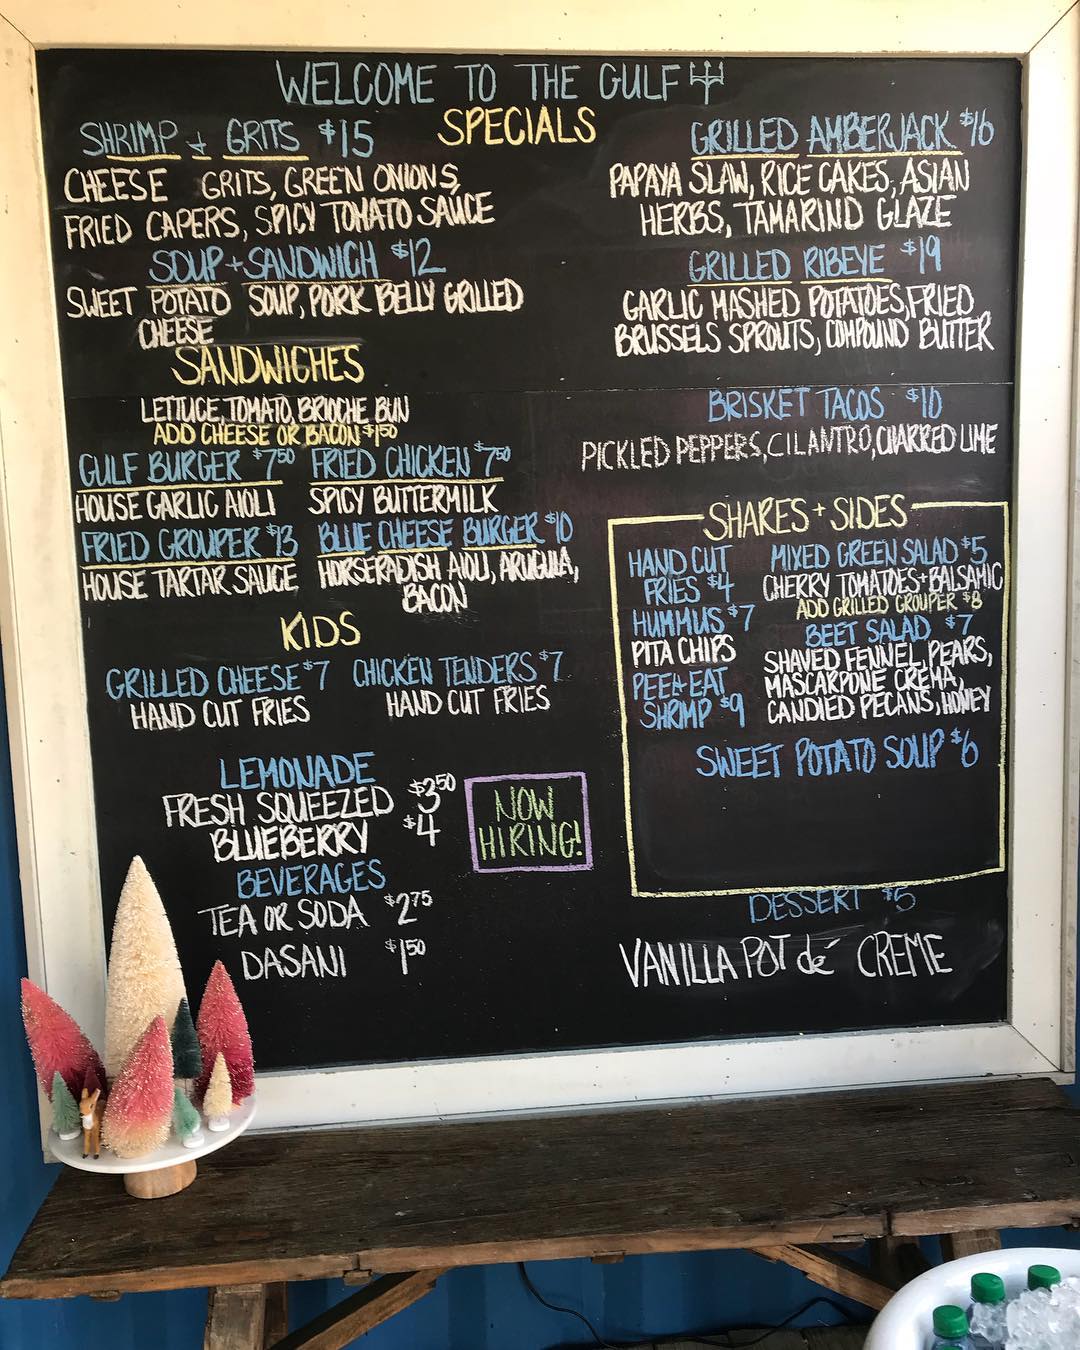 WELCOME TO THE GULF
SPECIALS
SHRIMP + GRITS $15
CHEESE GRITS, GREEN ONIONS,
FRIED CAPERS, SPICY TOMATO SAUCE
SOUP + SANDWICH $12
SWEET POTATO SOUP, PORK BELLY GRILLED
CHEESE
GRILLED AMBERJACK $16
PAPAYA SLAW, RICE CAKES, ASIAN
HERBS, TAMARIND GLAZE
GRILLED RIBEYE $19
GARLIC MASHED POTATOES, FRIED
BRUSSELS SPROUTS, COMPOUND BUTTER
BRISKET TACOS $10
PICKLED PEPPERS, CILANTRO, CHARRED LIME
SANDWICHES
LETTUCE, TOMATO, BRIOCHE BUN
ADD CHEESE OR BACON $1.50
GULF BURGER $7.50
HOUSE GARLIC AIOLI
FRIED CHICKEN $7.50
SPICY BUTTERMILK
FRIED GROUPER $13
HOUSE TARTAR SAUCE
BLUE CHEESE BURGER $10
HORSERADISH AIOLI, ARUGULA,
BACON
KIDS
GRILLED CHEESE $7
HAND CUT FRIES
CHICKEN TENDERS $7
HAND CUT FRIES
SHARES + SIDES
HAND CUT
FRIES $4
HUMMUS $7
PITA CHIPS
PEEL+EAT
SHRIMP $9
MIXED GREEN SALAD $5
CHERRY TOMATOES + BALSAMIC
ADD GRILLED GROUPER $8
BEET SALAD $7
SHAVED FENNEL, PEARS,
MASCARPONE CREMA,
CANDIED PECANS, HONEY
SWEET POTATO SOUP $6
LEMONADE
FRESH SQUEEZED $3.50
BLUEBERRY $4
BEVERAGES
TEA OR SODA $2.75
DASANI $1.50
NOW
HIRING!
DESSERT $5
VANILLA POT dé CREME